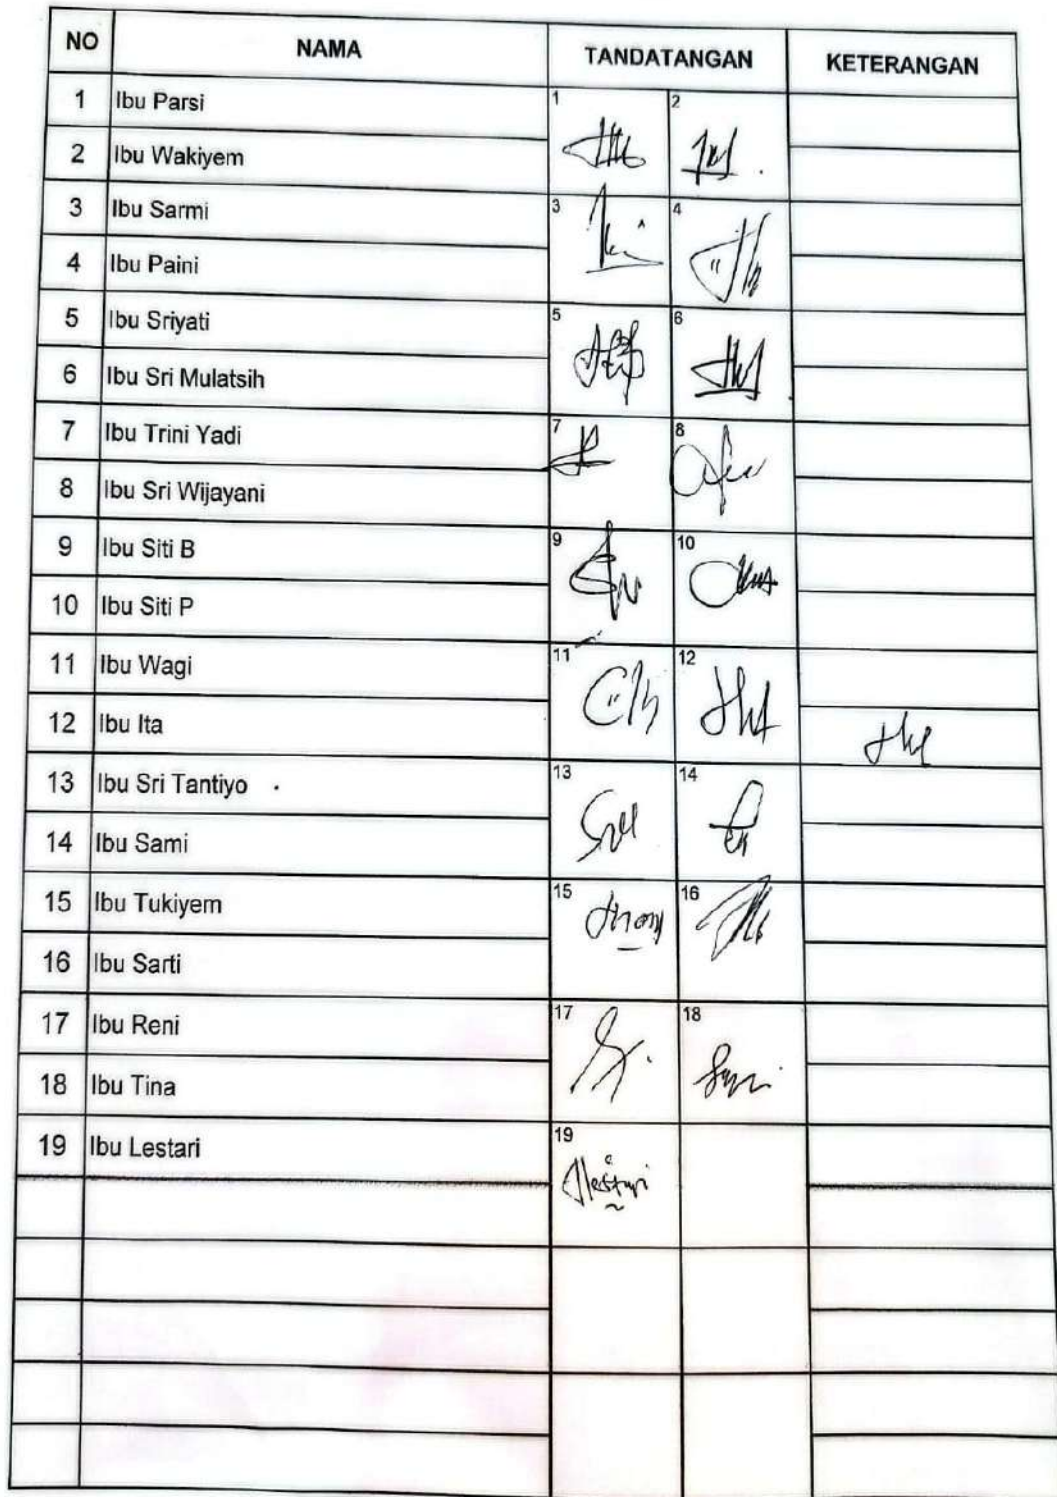 NO NAMA TANDATANGAN KETERANGAN
1 Ibu Parsi 1 2
2 Ibu Wakiyem
3 Ibu Sarmi 3 4
4 Ibu Paini
5 Ibu Sriyati 5 6
6 Ibu Sri Mulatsih
7 Ibu Trini Yadi 7 8
8 Ibu Sri Wijayani
9 Ibu Siti B 9 10
10 Ibu Siti P
11 Ibu Wagi 11 12
12 Ibu Ita
13 Ibu Sri Tantiyo 13 14
14 Ibu Sami
15 Ibu Tukiyem 15 16
16 Ibu Sarti
17 Ibu Reni 17 18
18 Ibu Tina
19 Ibu Lestari 19